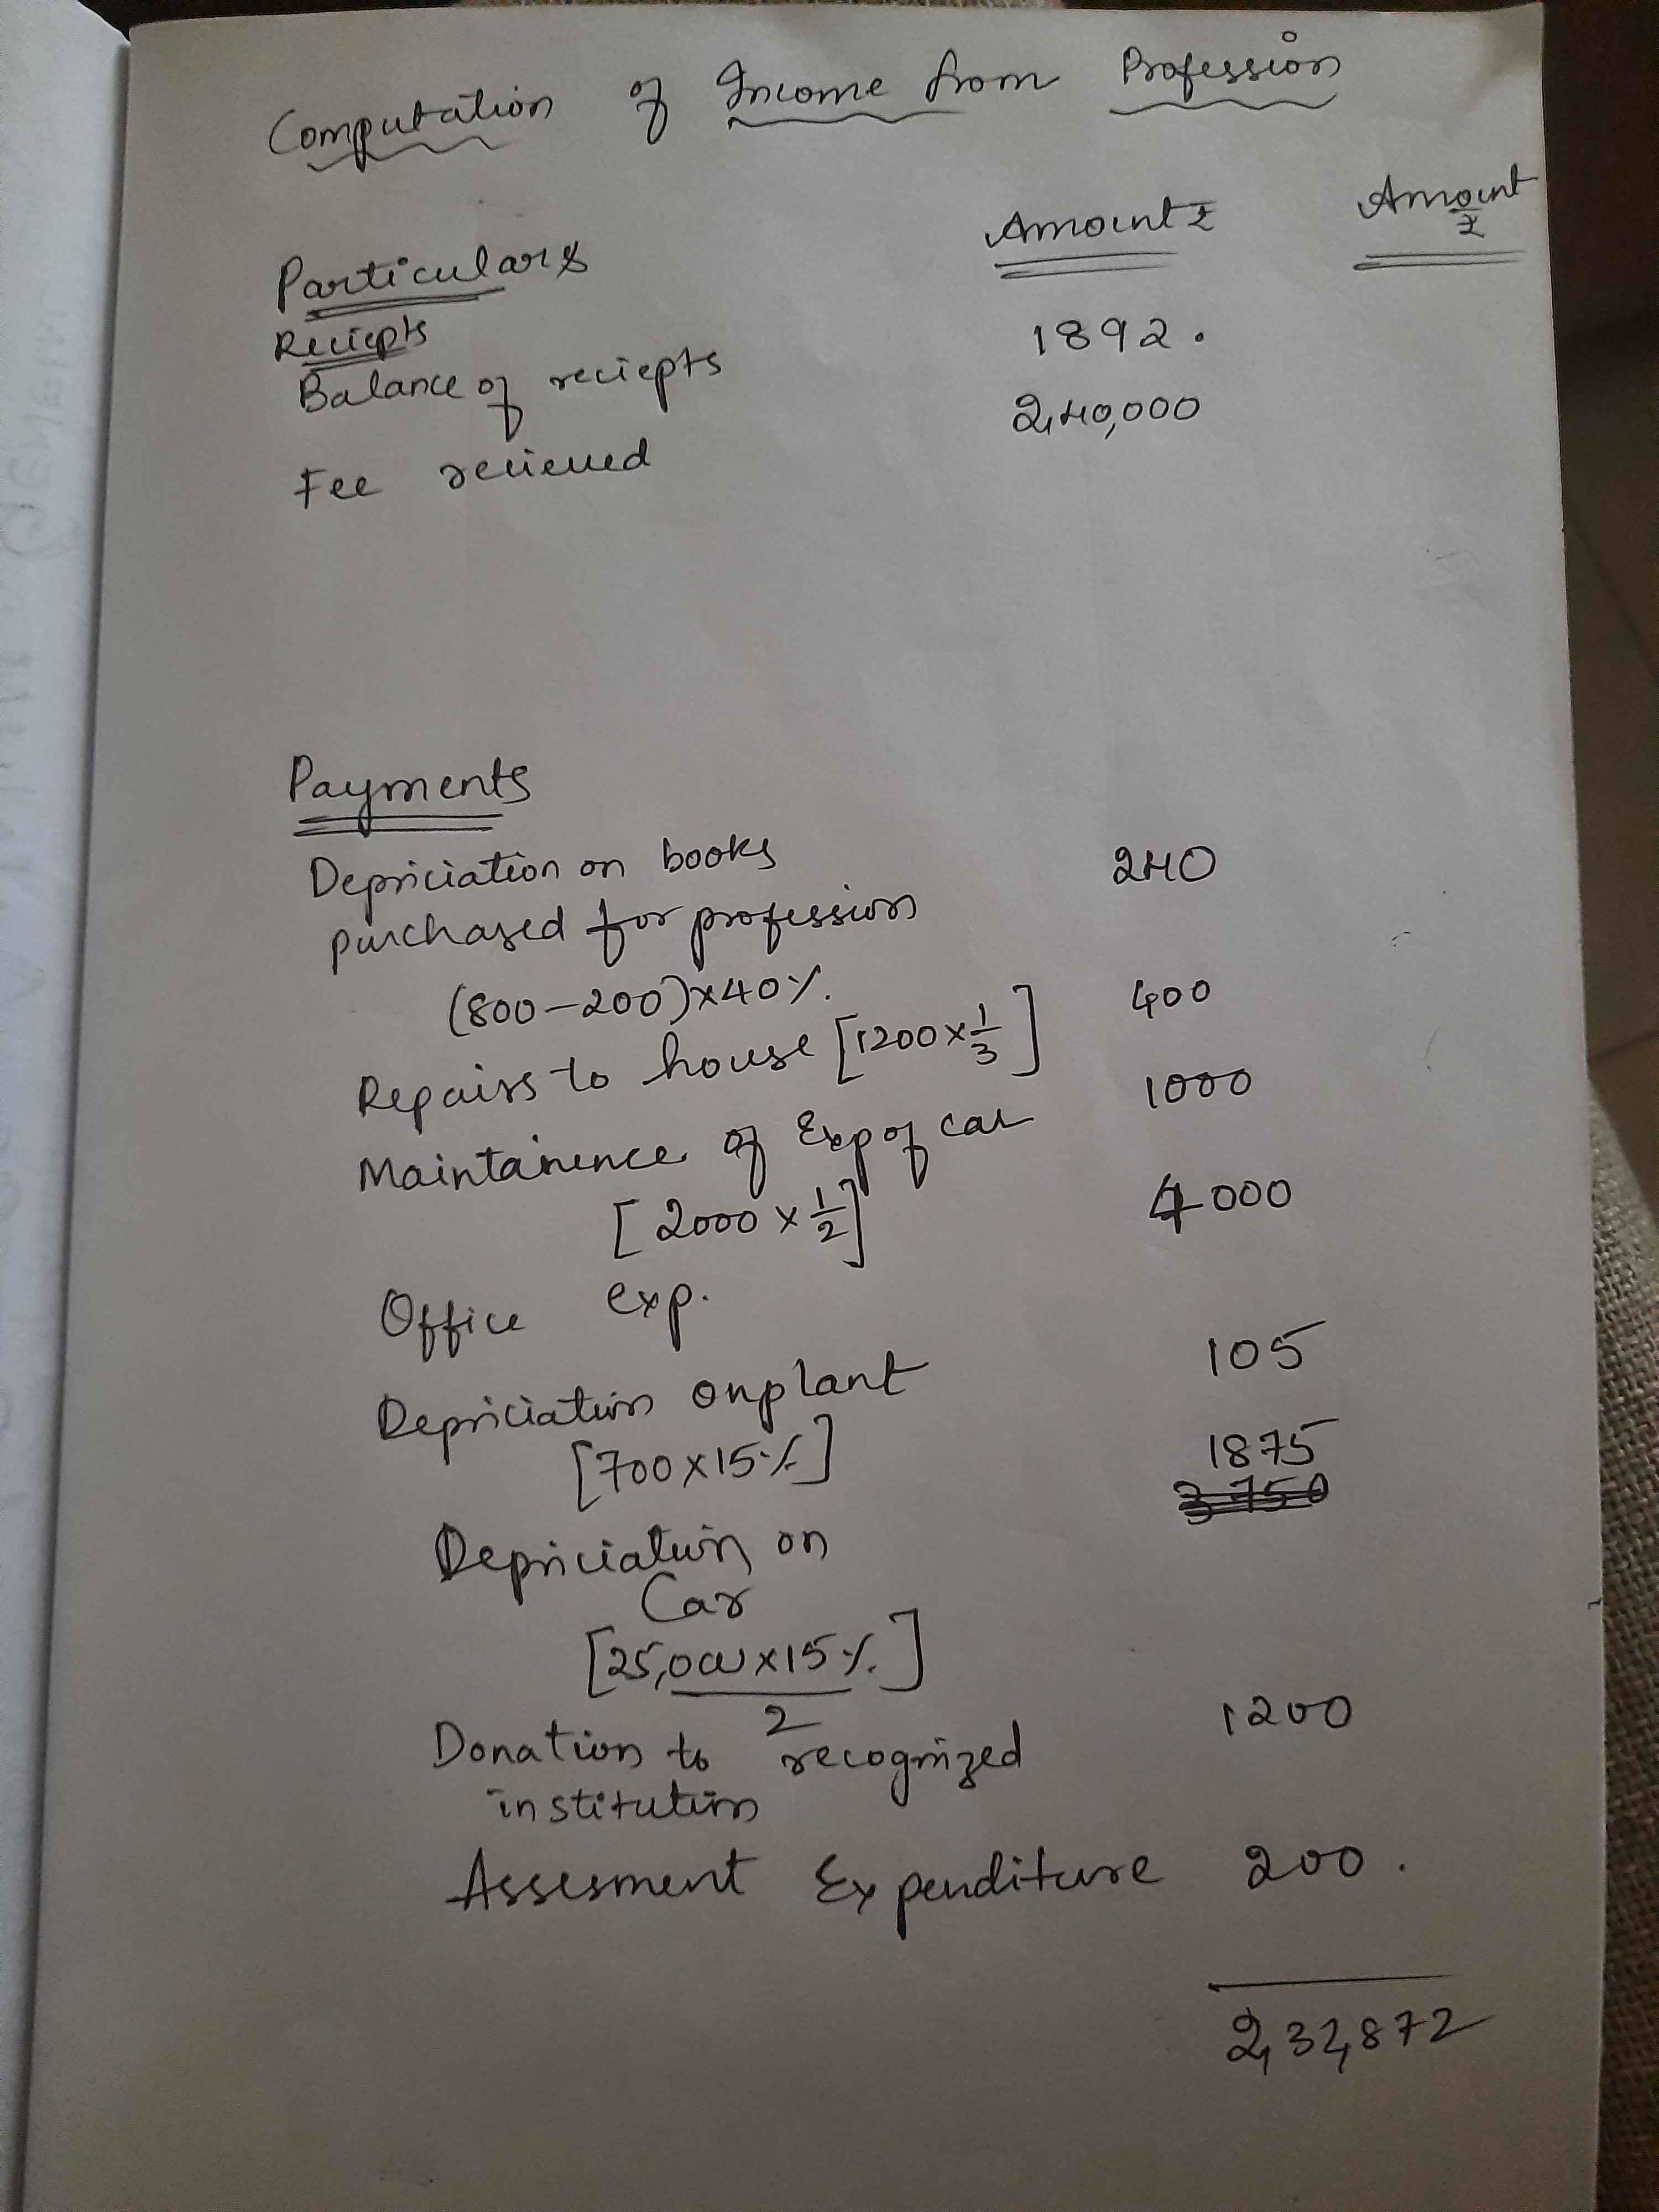 Computation of Income from Profession
Particulars Amount ₹ Amount ₹
Reciepts
Balance of reciepts 1892.
Fee recieved 2,40,000
Payments
Depriciation on books 240
purchased for profession
(800-200)x40%.
Repairs to house [1200x1/3] 400
Maintainence of Exp of car 1000
[2000 x 1/2]
Office exp. 4000
Depriciation on plant 105
[700x15%]
Depriciation on 1875
3750
Car
[25,000x15%.]
2
Donation to recognized 1200
institution
Assesment Expenditure 200.
2,32,872